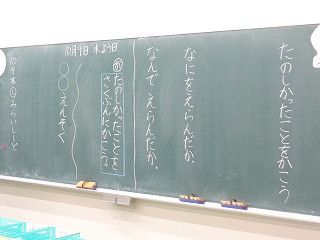 たのしかったことをかこう
なにをえらんだか。
なんで えらんだか。
10月9日 木よう日
め たのしかったことを、
さくぶんにかこう。
○○えんそく
10 9 木 ① みらいシート